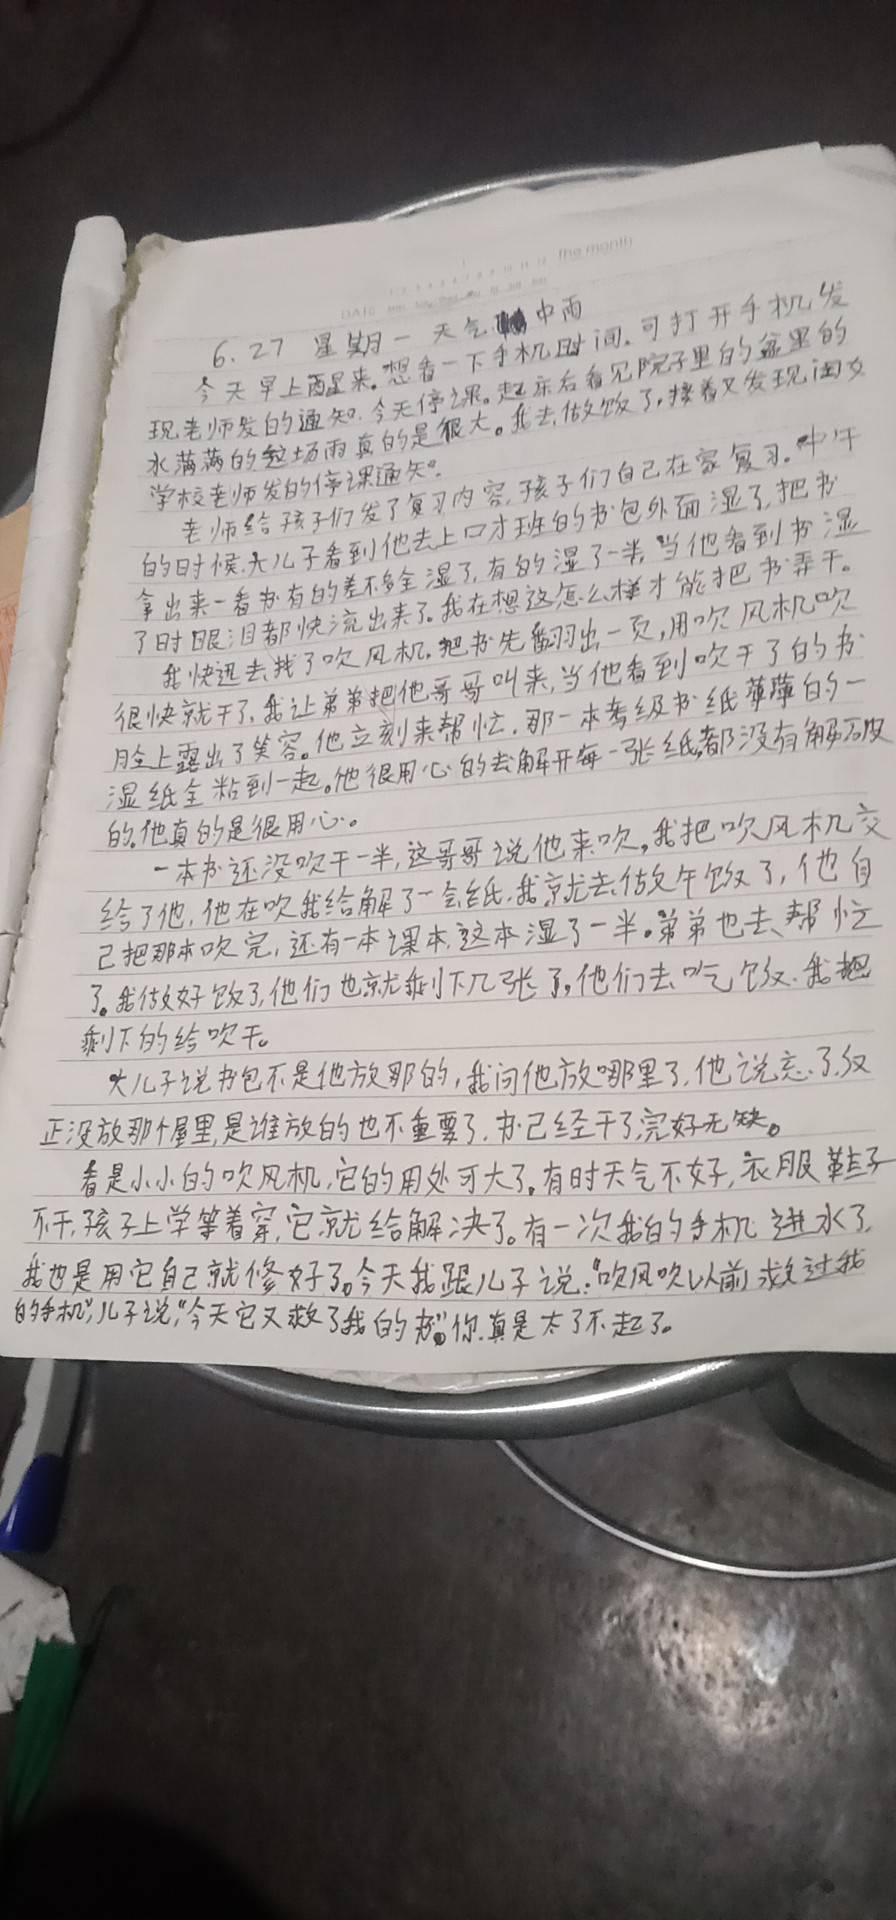 the month
DATE
6.27 星期一 天气 中雨
今天早上醒来.想看一下手机时间.可打开手机发
现老师发的通知.今天停课。起床后看见院子里的盆里的
水满满的这场雨真的是很大。我去做饭了,接着又发现闺女
学校老师发的停课通知。
老师给孩子们发了复习内容,孩子们自己在家复习.中午
的时候.大儿子看到他去上口才班的书包外面湿了,把书
拿出来一看书有的差不多全湿了,有的湿了一半,当他看到书湿
了时眼泪都快流出来了。我在想这怎么样才能把书弄干。
我快迅去找了吹风机.把书先翻出一页,用吹风机吹
很快就干了,我让弟弟把他哥哥叫来,当他看到吹干了的书
脸上露出了笑容。他立刻来帮忙.那一本考级书纸薄薄的一
湿纸全粘到一起。他很用心的去解开每一张纸,都没有解破
的.他真的是很用心。
一本书还没吹干一半,这哥哥说他来吹,我把吹风机交
给了他,他在吹我给解了一会纸.我就去做午饭了,他自
己把那本吹完,还有一本课本,这本湿了一半。弟弟也去帮忙
了。我做好饭了,他们也就剩下几张了,他们去吃饭.我把
剩下的给吹干。
大儿子说书包不是他放那的,我问他放哪里了,他说忘了,反
正没放那个屋里,是谁放的也不重要了.书已经干了,完好无缺。
看是小小的吹风机,它的用处可大了。有时天气不好,衣服鞋子
不干,孩子上学等着穿,它就给解决了。有一次我的手机进水了,
我也是用它自己就修好了。今天我跟儿子说:“吹风吹以前救过我
的手机”,儿子说,“今天它又救了我的书”。你真是太了不起了。